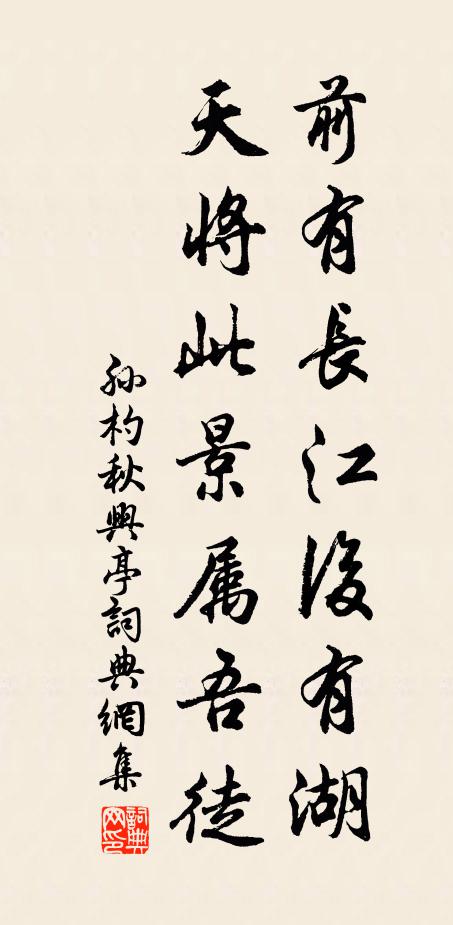 前有長江後有湖
天將此景属吾徒
孫杓秋興亭詞典網集
詞典網印